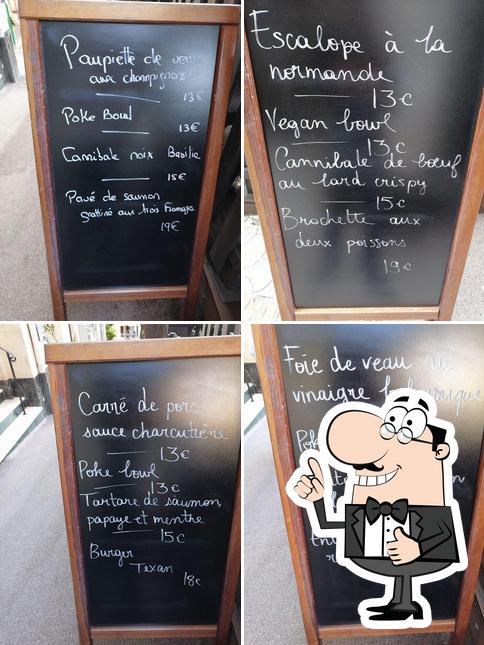 Paupiette de veau
aux champignons
13€
Poke Bowl
13€
Cannibale noix Basilic
15€
Pavé de saumon
gratiné aux trois Fromages
19€
Escalope à la
normande
13€
Vegan bowl
13€
Cannibale de bœuf
au lard crispy
15€
Brochette aux
deux poissons
19€
Carré de porc
sauce charcutière
13€
Poke bowl
13€
Tartare de saumon,
papaye et menthe
15€
Burger
Texan
18€
Foie de veau au
vinaigre balsamique